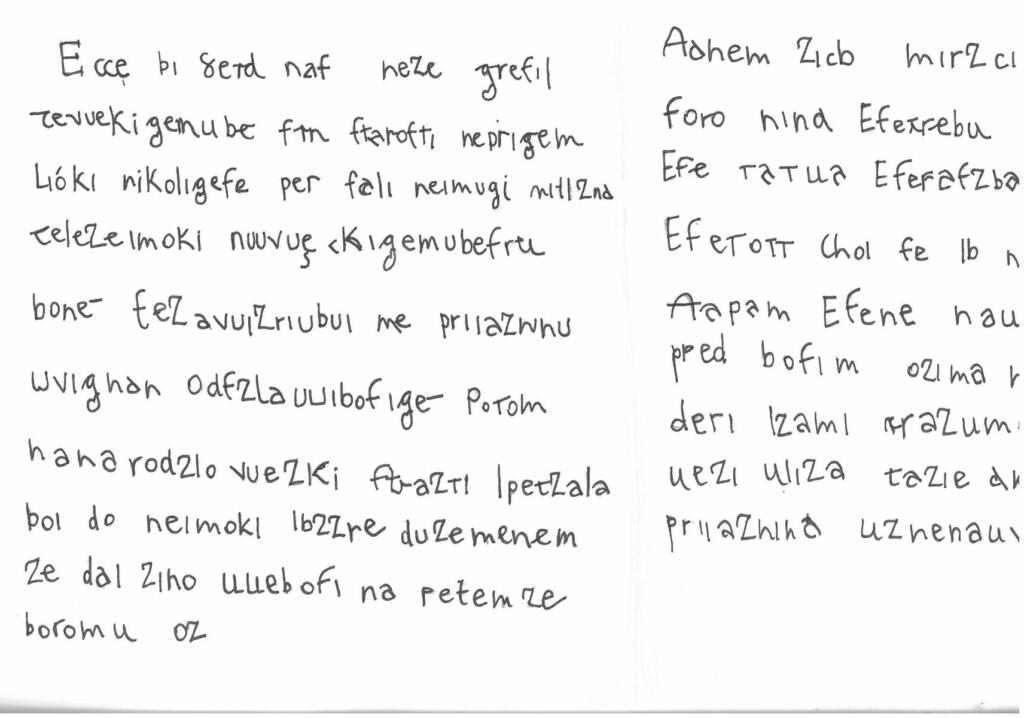 Ecce bi detd naf neze grefil
tevuekigemube ftn ftarofti neprigem
Lióki nikoligefe per fali neimugi mitlizna
telezeimoki nuvuę ckigemubefru
bone- tez avuizriubui me priiaznnu
uvignan Odfzlauuibofige- Potom
nanarodzlo vuezki ftrazti Ipetzala
boi do neimoki Ibzzre duzemenem
Ze dal Ziho uuebofi na petemze
boromu oz
Adhem Zicb mirzci
foro nina Efertrebu
Efe tatua Eferafzba
Efetott Choi fe Ib n
Aapam Efene nau
pred bofim ozima
deri Izami trazum
uezi uliza tazie
priiaznina uznenauv